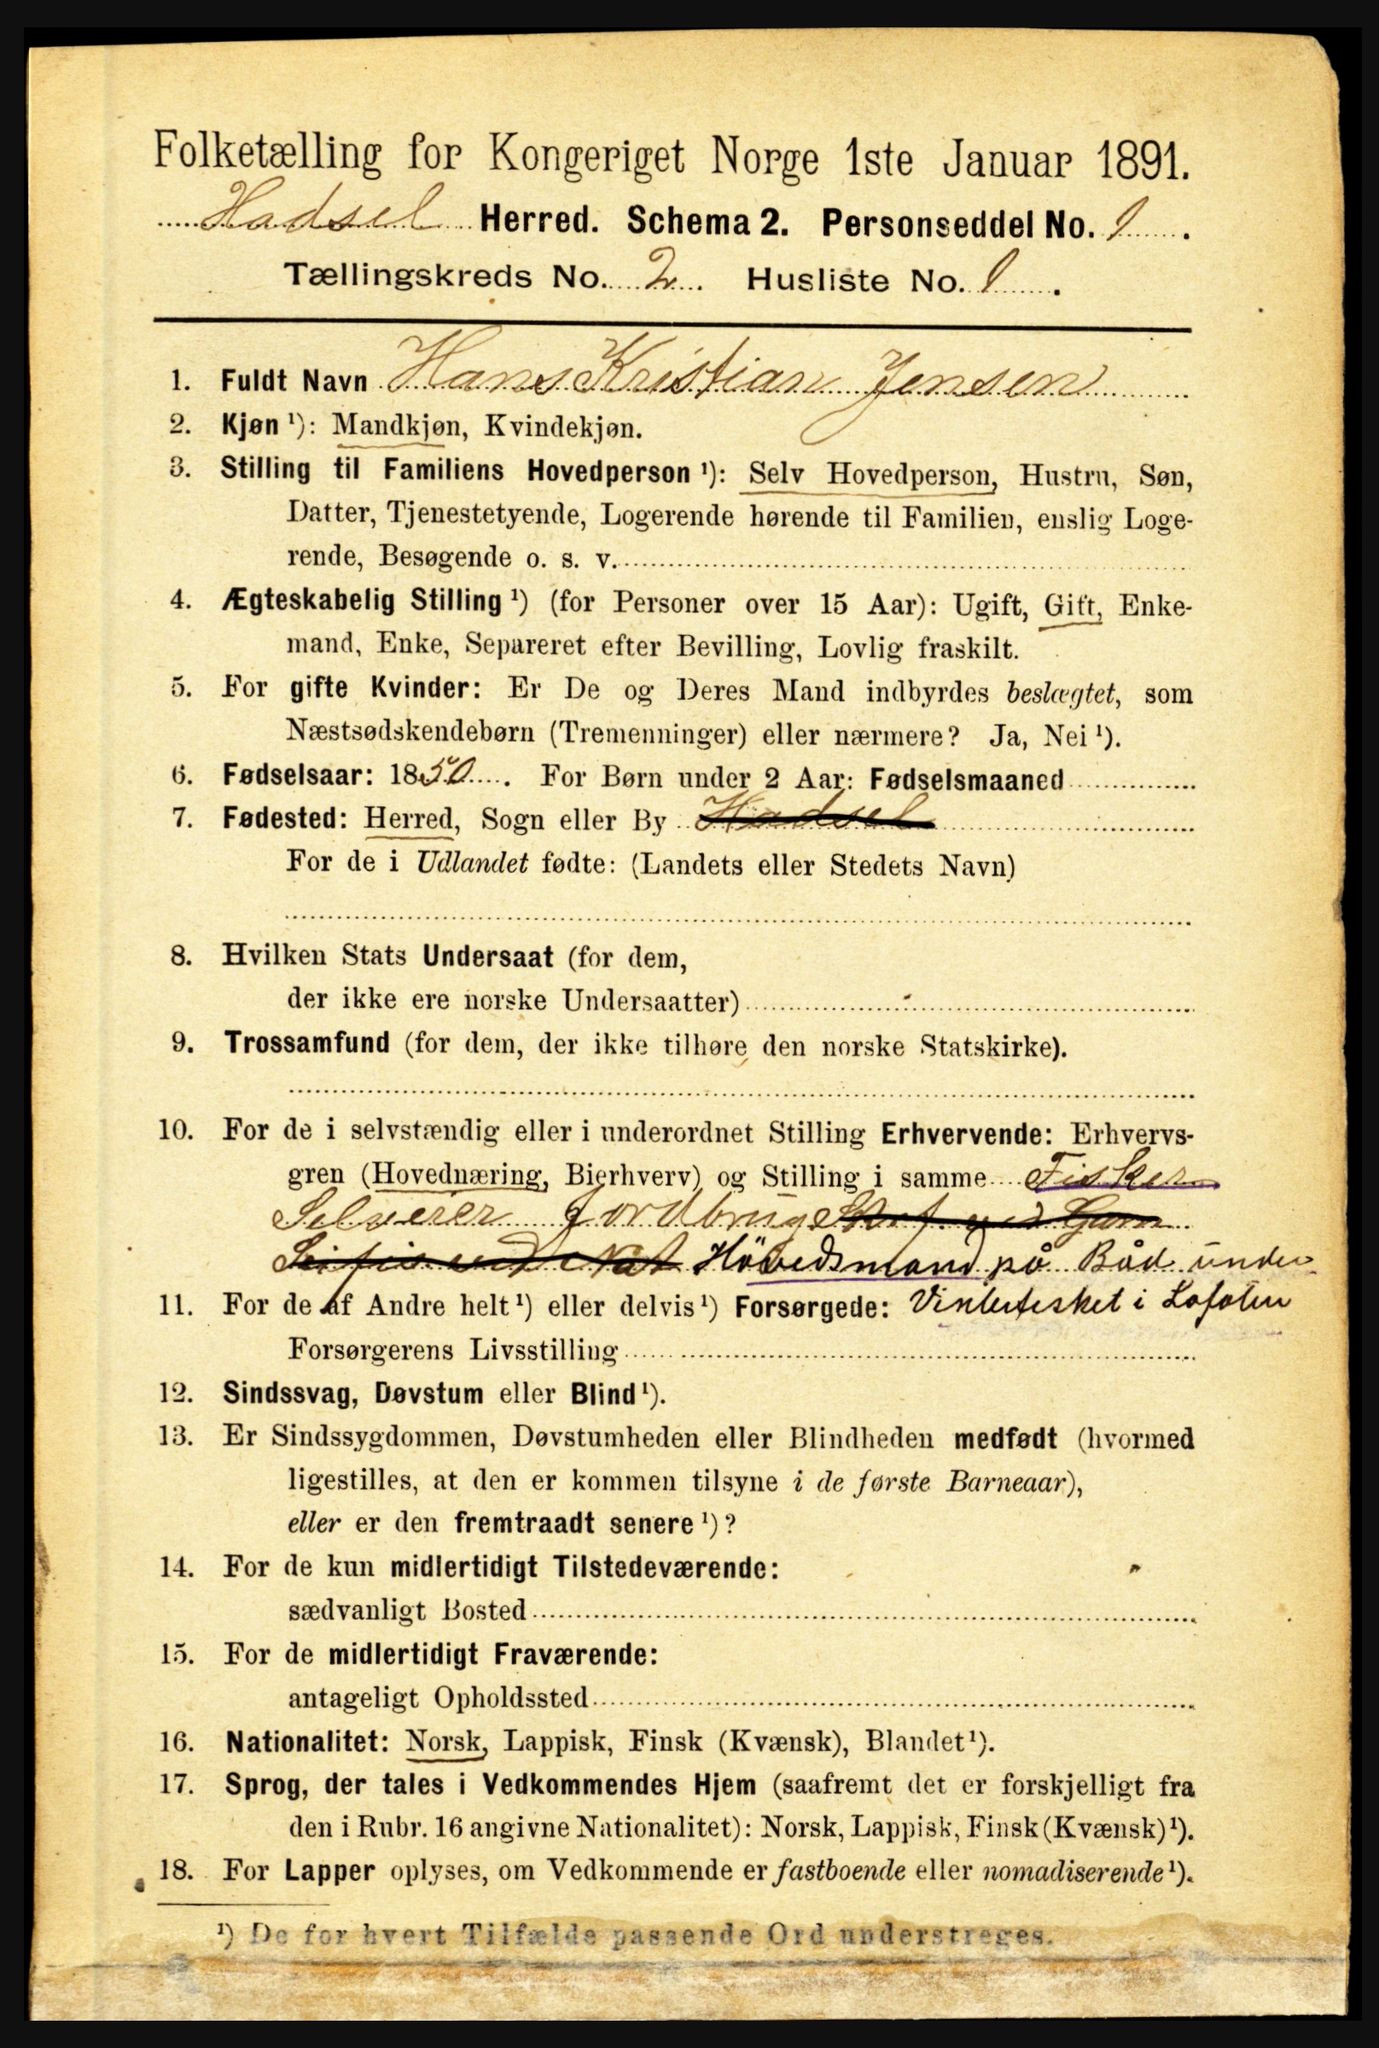 Folketælling for Kongeriget Norge 1ste Januar 1891.
Hadsel Herred. Schema 2. Personseddel No. 1.
Tællingskreds No. 2. Husliste No. 1.
1. Fuldt Navn Hans Kristian Jensen
2. Kjøn ¹): Mandkjøn, Kvindekjøn.
3. Stilling til Familiens Hovedperson ¹): Selv Hovedperson, Hustru, Søn,
Datter, Tjenestetyende, Logerende hørende til Familien, enslig Loge-
rende, Besøgende o. s. v.
4. Ægteskabelig Stilling ¹) (for Personer over 15 Aar): Ugift, Gift, Enke-
mand, Enke, Separeret efter Bevilling, Lovlig fraskilt.
5. For gifte Kvinder: Er De og Deres Mand indbyrdes beslægtet, som
Næstsødskendebørn (Tremenninger) eller nærmere? Ja, Nei ¹).
6. Fødselsaar: 1850. For Børn under 2 Aar: Fødselsmaaned
7. Fødested: Herred, Sogn eller By Hadsel
For de i Udlandet fødte: (Landets eller Stedets Navn)
8. Hvilken Stats Undersaat (for dem,
der ikke ere norske Undersaatter)
9. Trossamfund (for dem, der ikke tilhøre den norske Statskirke).
10. For de i selvstændig eller i underordnet Stilling Erhvervende: Erhvervs-
gren (Hovednæring, Bierhverv) og Stilling i samme Fisker
Selveier Jordbrug
Høvedsmand på Båd under
11. For de af Andre helt ¹) eller delvis ¹) Forsørgede: Vinterfisket i Lofoten
Forsørgerens Livsstilling
12. Sindssvag, Døvstum eller Blind ¹).
13. Er Sindssygdommen, Døvstumheden eller Blindheden medfødt (hvormed
ligestilles, at den er kommen tilsyne i de første Barneaar),
eller er den fremtraadt senere ¹)?
14. For de kun midlertidigt Tilstedeværende:
sædvanligt Bosted
15. For de midlertidigt Fraværende:
antageligt Opholdssted
16. Nationalitet: Norsk, Lappisk, Finsk (Kvænsk), Blandet ¹).
17. Sprog, der tales i Vedkommendes Hjem (saafremt det er forskjelligt fra
den i Rubr. 16 angivne Nationalitet): Norsk, Lappisk, Finsk (Kvænsk) ¹).
18. For Lapper oplyses, om Vedkommende er fastboende eller nomadiserende ¹).
¹) De for hvert Tilfælde passende Ord understreges.